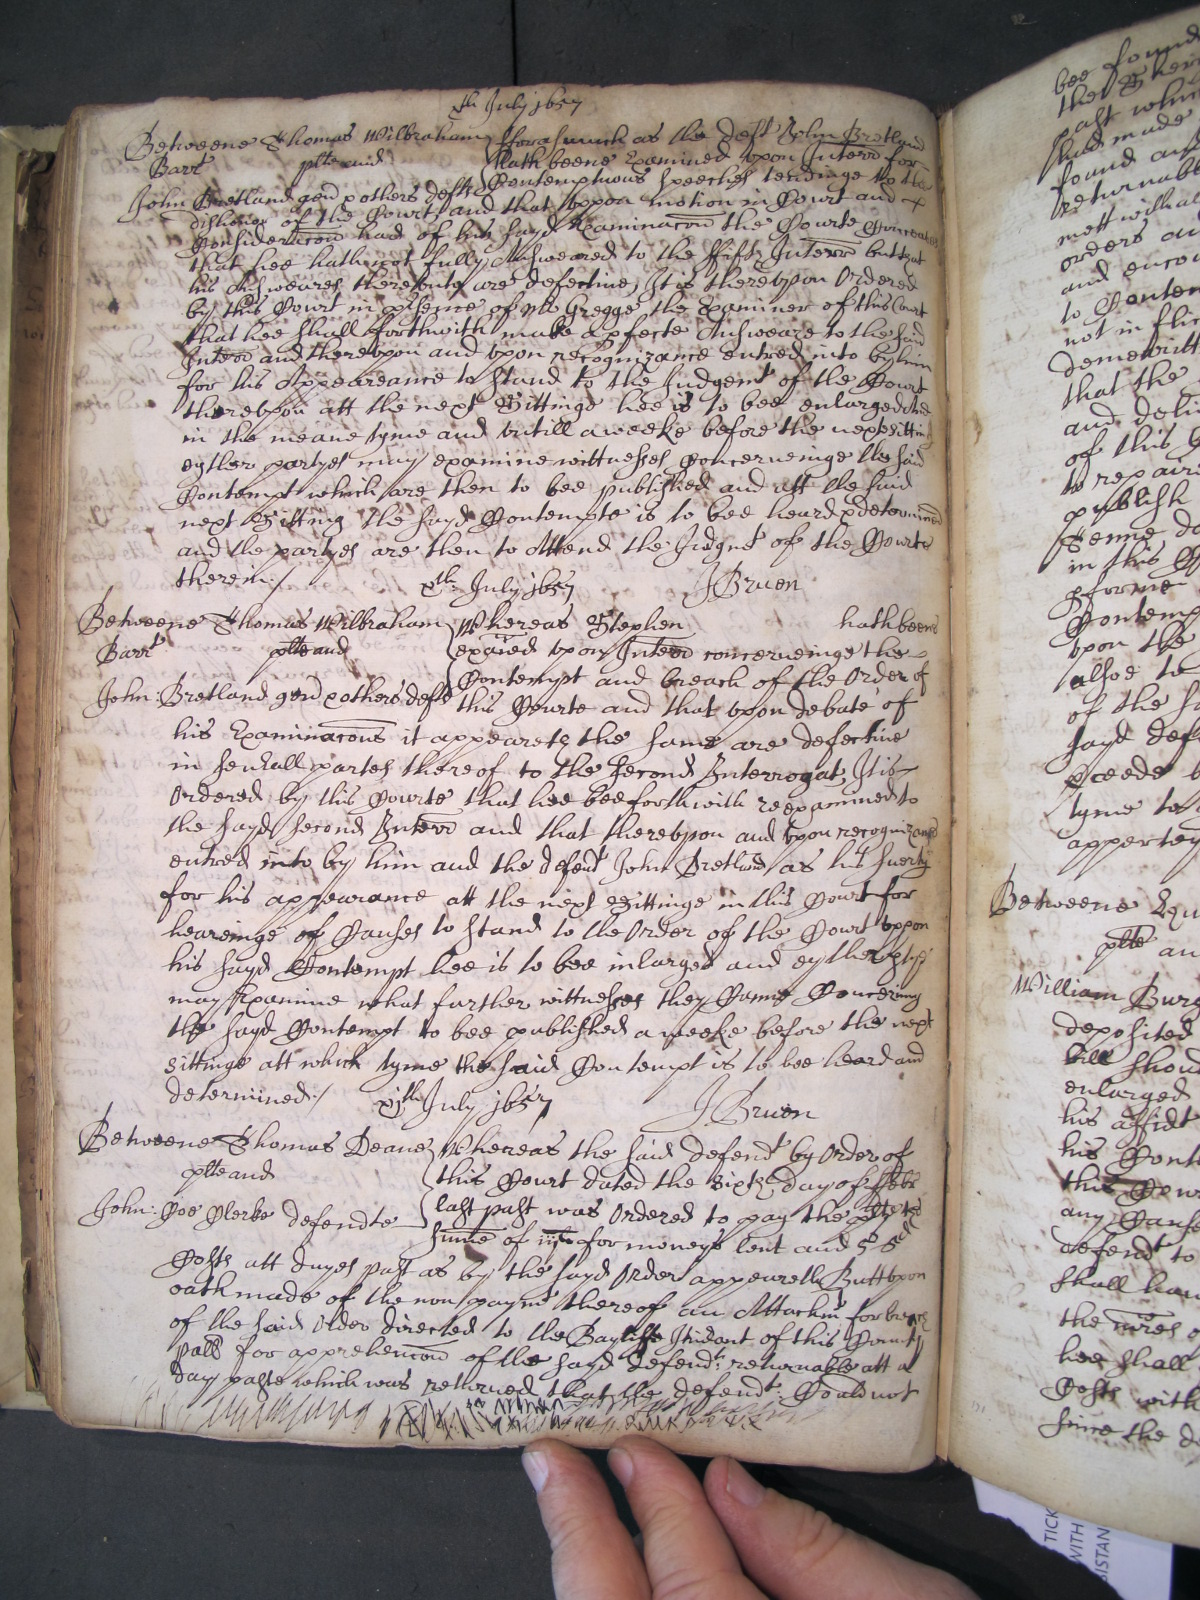 xth July 1657
Betweene Thomas Wilbraham fforasmuch as the deft John Bretland
Barrt plte and hath beene Examined vpon Interr for
Contemptuous speeches tendinge to the
John Bretland gen & others defts
dishonor of the Court and that vppon motion in Court and
Consideracon had of his sayd Examinacon the Courte
that hee hath not fully Answeared to the ffifth Interr butt yt
his Answeares therevnto are defective, It is therevpon Ordered
by this Court in psence of Mr Gregge the Examiner of this Court
that hee shall forthwith make a pfecte Answeare to the said
Interr and therevpon and vpon recognizance entred into by him
for his Appeareance to stand to the Judgemt of the Court
therevpon att the next Sittinge hee is to bee enlarged And
in the meane tyme and vntill a weeke before the next sitting
eyther partyes may examine wittnesses Concerneinge the said
Contempt which are then to bee published and att the said
next Sitting the sayd Contempte is to bee heard & determined
and the partyes are then to Attend the Judgmt of the Courte
therein:/
xth July 1657 J Bruen
Betweene Thomas Wilbraham Whereas Stephen hath beene
Barrt plte and exaied vpon Interr concerneinge the
Contempt and breach of the Order of
John: Bretland gen & others defts this Courte and that vpon debate of
his Examinacons it appeareth the same are defective
in seuerall partes thereof to the second Interrogat, It is
Ordered by this Courte that hee bee forthwith reexamined to
the sayd second Interr and that therevpon and vpon recognizance
entred into by him and the defendt John Bretland as his suerty
for his appearance att the next Sittinge in this Court for
heareinge of Causes to stand to the Order of the Court vppon
his sayd Contempt hee is to bee inlarged and eyther ptyes
may Examine what further wittnesses they Canne Concerning
the sayd Contempt to bee published a weeke before the next
sittinge att which tyme the said Contempt is to bee heard and
determined:/ xjth July 1657 J Bruen
Betweene Thomas Deane Whereas the said defendt by Order of
plte and this Court dated the Sixth day of Febr
last past was Ordered to pay the plte the
John: Coe Clerke defendte
sume of for moneys lent and 5s 8d
Costs att dayes past as by the sayd Order appeareth Butt vpon
oath made of the non paymt thereof an Attachmt for breach
of the said Order directed to the Bayliffe Itinerant of this County
pall for apprehencon of the sayd defendt: returnable att a
day paste which was returned that the defendt: Could not
bee found
the
past whi
had made
found an
returnabl
mett withal
orders an
and encou
to Contem
not in flic
demeritt
that the
and deli
of this
to repair
publish
Jenne da
in this
pforme
Contemp
vpon the
alsoe to
of the sa
sayd def
pceede
tyme to
apperteyn
Betweene
plte an
William Burg
deposited
Bill shou
enlarged
his affidt
his Cont
this Cour
any Cause
defendt to
shall hau
the
hee shall
Costs with
since the de
TICK
WITH
SISTAN